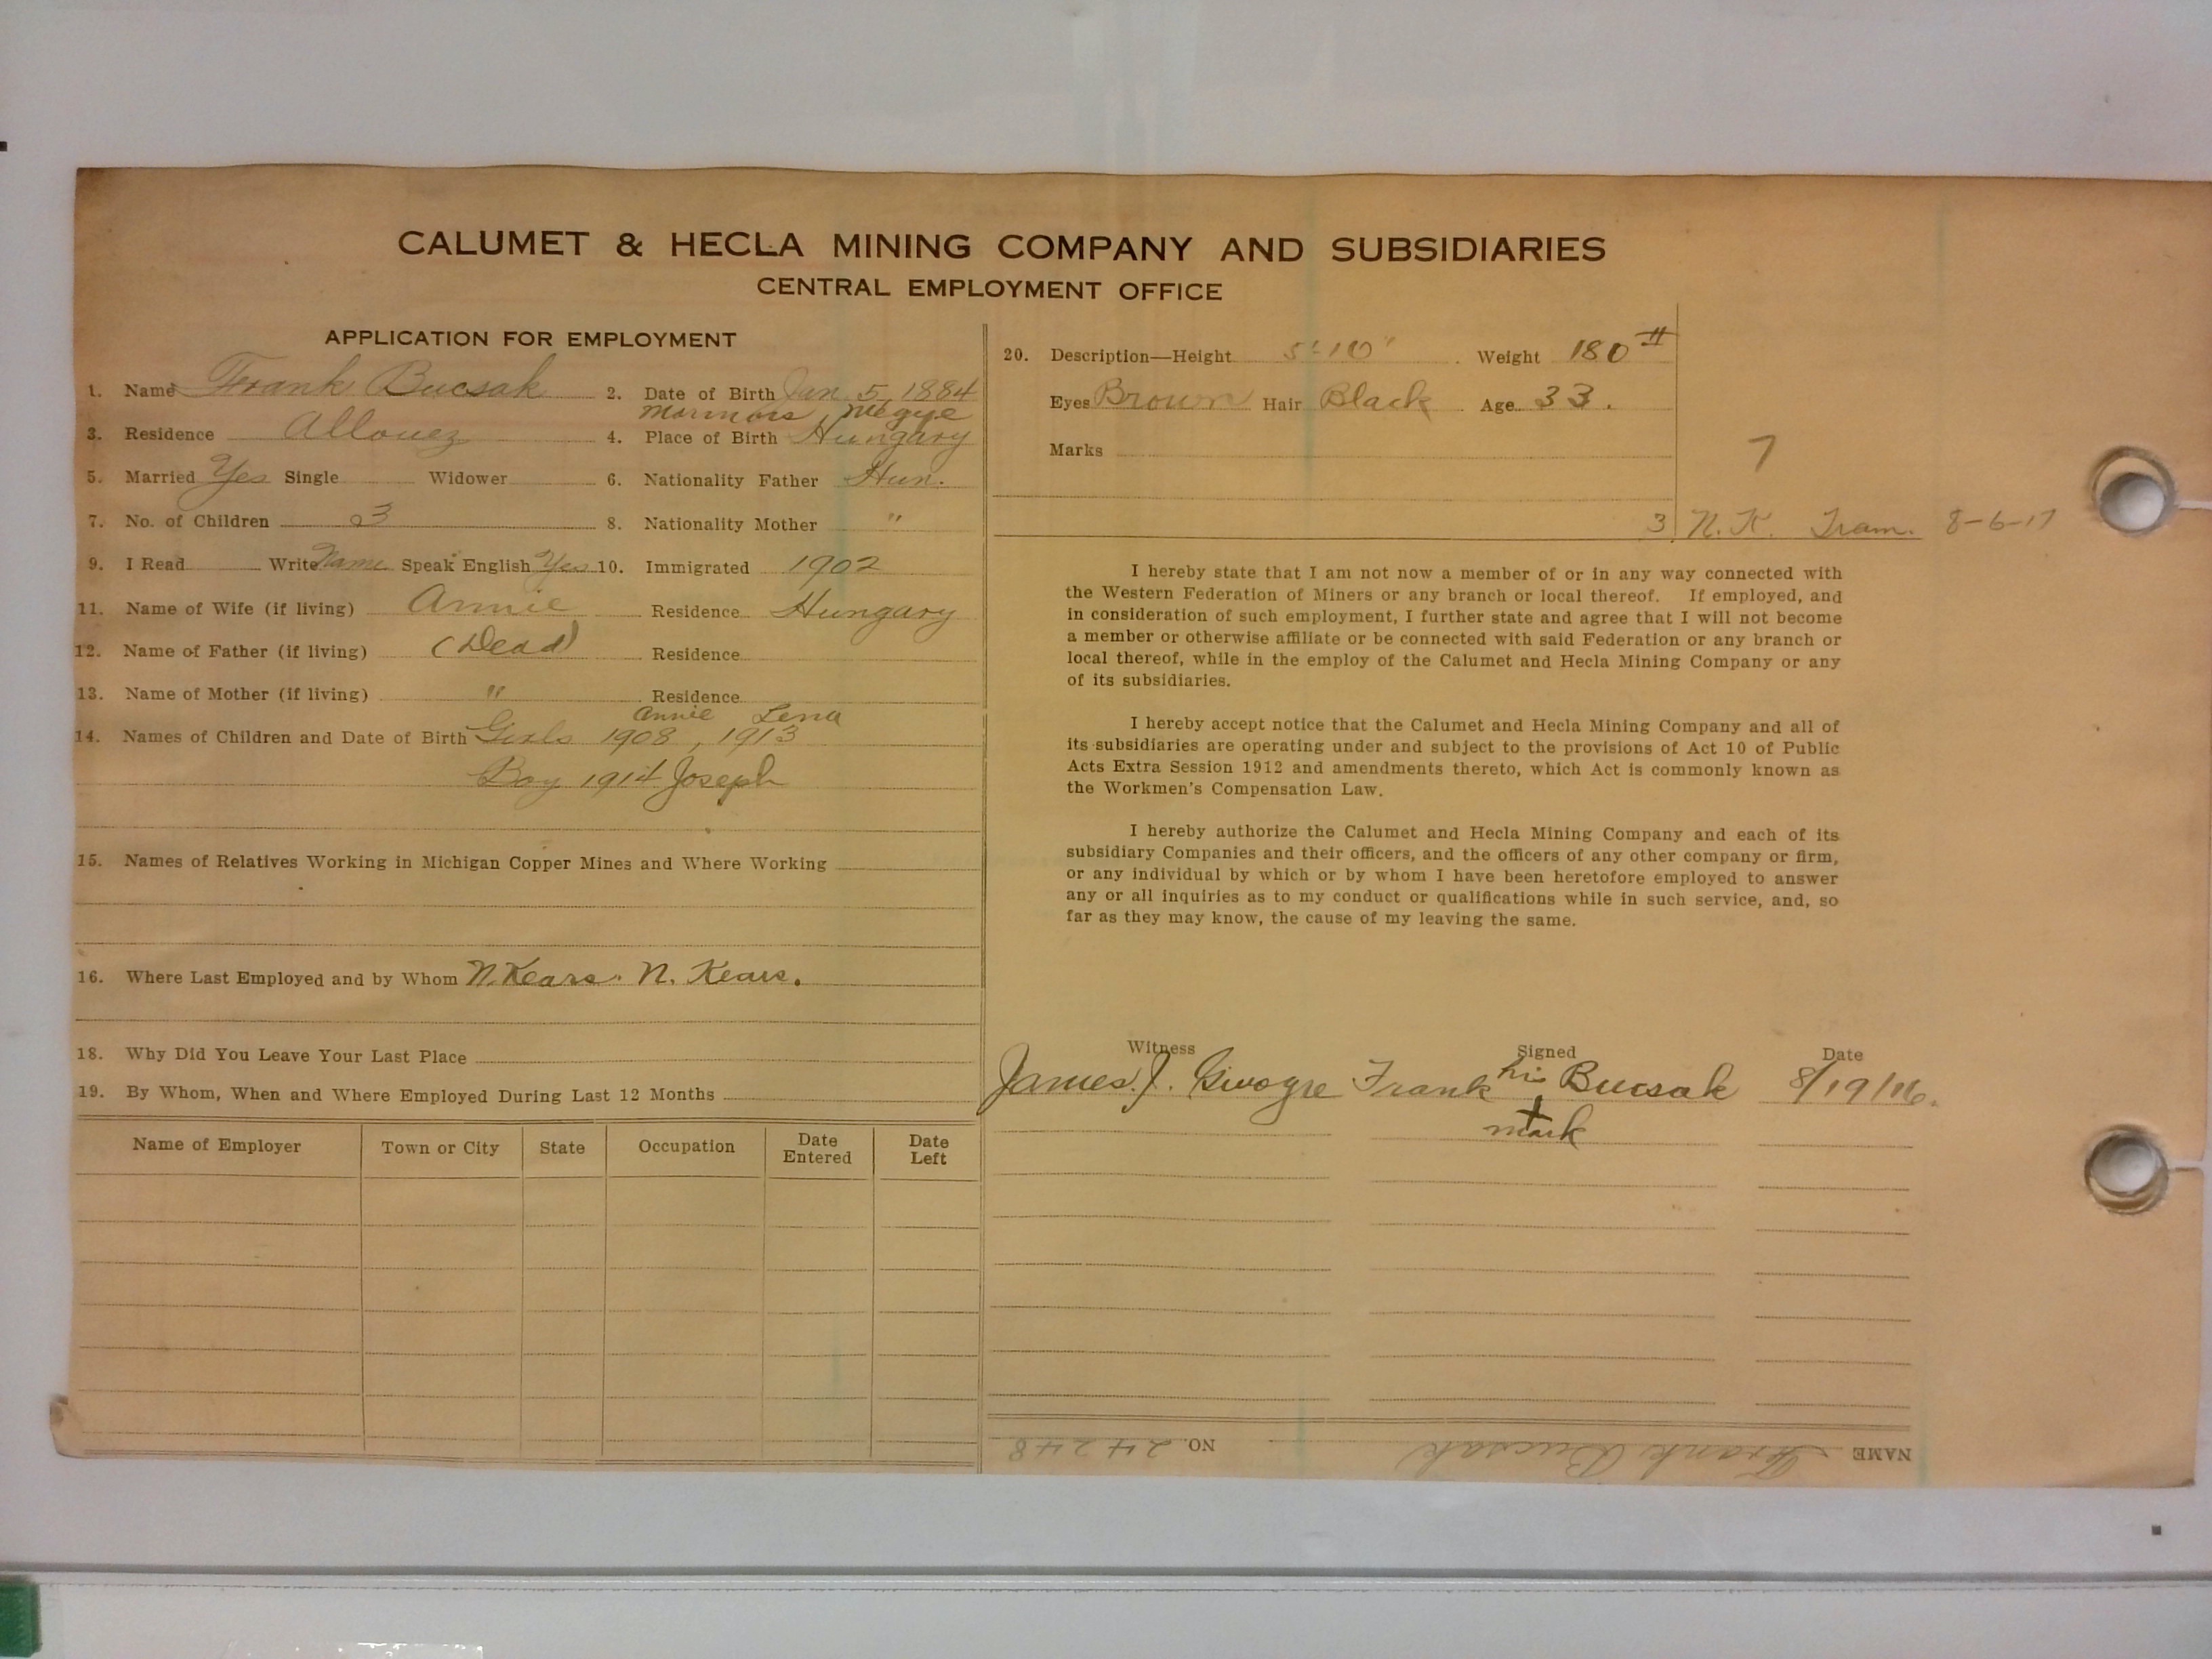 CALUMET & HECLA MINING COMPANY AND SUBSIDIARIES
CENTRAL EMPLOYMENT OFFICE
APPLICATION FOR EMPLOYMENT
1. Name Frank Bucsak 2. Date of Birth Jan. 5, 1884
Megye
3. Residence Allouez 4. Place of Birth Hungary
5. Married Yes Single Widower 6. Nationality Father Hun.
7. No. of Children 3 8. Nationality Mother "
9. I Read Write Name Speak English Yes 10. Immigrated 1902
11. Name of Wife (if living) Annie Residence Hungary
12. Name of Father (if living) (Dead) Residence
13. Name of Mother (if living) " Residence
Annie Lena
14. Names of Children and Date of Birth Girls 1908, 1913
Boy 1914 Joseph
15. Names of Relatives Working in Michigan Copper Mines and Where Working
16. Where Last Employed and by Whom N. Kears. N. Kears.
18. Why Did You Leave Your Last Place
19. By Whom, When and Where Employed During Last 12 Months
Name of Employer Town or City State Occupation Date Entered Date Left
20. Description—Height 5'-10" Weight 180 #
Eyes Brown Hair Black Age 33.
Marks
7
3 N. K. Tram. 8-6-17
I hereby state that I am not now a member of or in any way connected with
the Western Federation of Miners or any branch or local thereof. If employed, and
in consideration of such employment, I further state and agree that I will not become
a member or otherwise affiliate or be connected with said Federation or any branch or
local thereof, while in the employ of the Calumet and Hecla Mining Company or any
of its subsidiaries.
I hereby accept notice that the Calumet and Hecla Mining Company and all of
its subsidiaries are operating under and subject to the provisions of Act 10 of Public
Acts Extra Session 1912 and amendments thereto, which Act is commonly known as
the Workmen's Compensation Law.
I hereby authorize the Calumet and Hecla Mining Company and each of its
subsidiary Companies and their officers, and the officers of any other company or firm,
or any individual by which or by whom I have been heretofore employed to answer
any or all inquiries as to my conduct or qualifications while in such service, and, so
far as they may know, the cause of my leaving the same.
Witness Signed Date
James J. Frank his Bucsak 8/19/16.
+
mark
NAME Frank Bucsak NO. 24248